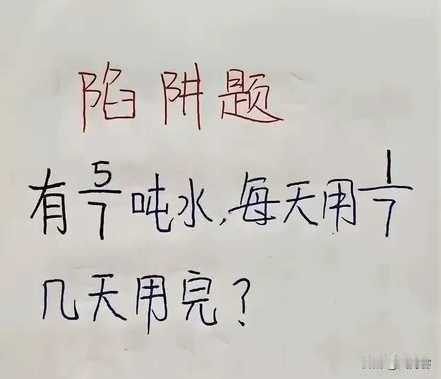 陷阱题
有5/7吨水,每天用1/7
几天用完?